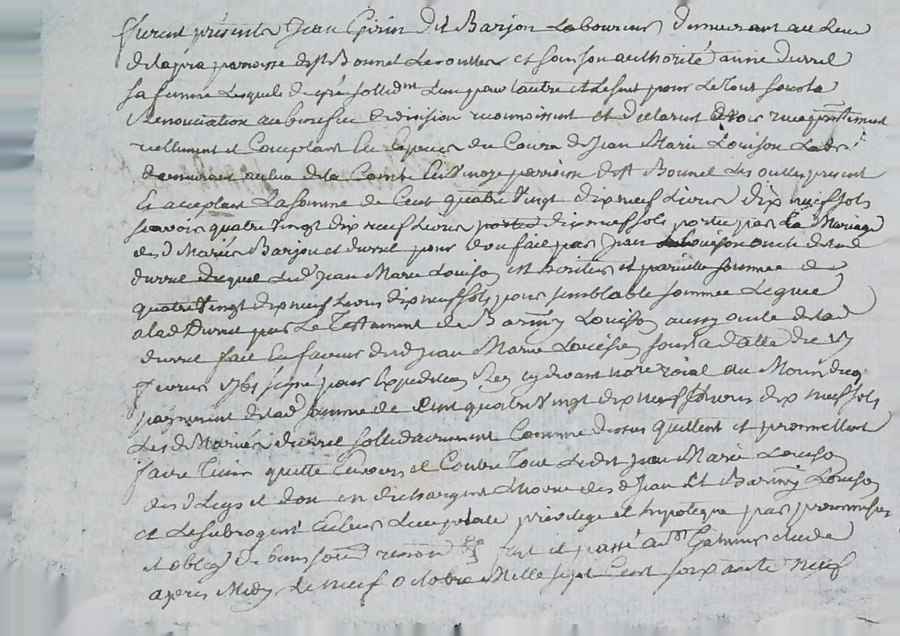 furent présents Jean Girin dit Barjon Laboureur demeurant au Lieu
de lapra parroisse de st Bonnet Les oulles et sous son authorité anne durel
sa femme Lesquels de gré sollidm Lun pour lautre et Lesuit pour Le tout sous la
Renonciation au benefice de division reconnoissent et declarent avoir receu
reellement et Comptant En Especes du Cours de Jean Marie Louison Lab
demeurant au lieu de la parroisse de st Bonnet Les oulles present
Et acceptant La somme de Cent quatre vingt dix neuf Livres dix neuf sols
scavoir quatre vingt dix neuf Livres dix neuf sols portée par Le Mariage
des d Mariés Barjon et durel pour don fait par Jean Louison oncle de lad
durel duquel Led Jean Marie Louison est heritier et pareille sommée de
quatre vingt dix neuf Livres dix neuf sols pour semblable sommee Leguée
a lad durel par Le Testament de Barmy Louison aussy oncle de lad
durel fait En faveur dud Jean Marie Louison sous la datte du
fevrier 1761 signé pour Expedition Rey cy devant nore roial au
payement de lad somme de Cent quatre vingt dix neuf Livres dix neuf sols
Les d Mariés durel sollidairement Comme dessus quittent et promettent
faire tenir quitte Envers et Contre Tout Ledit Jean Marie Louison
des d Legs et don en dechargent Lhoirie des d Jean Et Barmy Louison
et Le subrogent En leurs Lieu place privilege et hypoteque par promesses
et oblig de biens soum renon fait et passé a st Galmier Etude
apres Midy Le neuf octobre Mille sept Cent soixante neuf